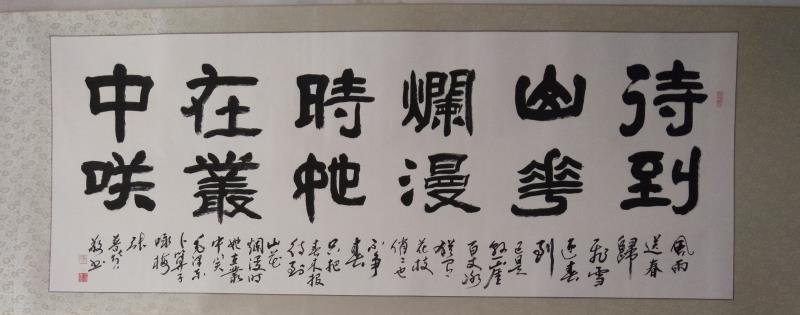 待到
山華
爛漫
時她
在叢
中咲
風雨
送春
歸
飛雪
迎春
到
已是
懸崖
百丈冰
猶有
花枝
俏〻也
不争
春
只把
春来报
待到
山花
爛漫时
她在叢
中笑
毛泽东
卜算子
咏梅
敬书